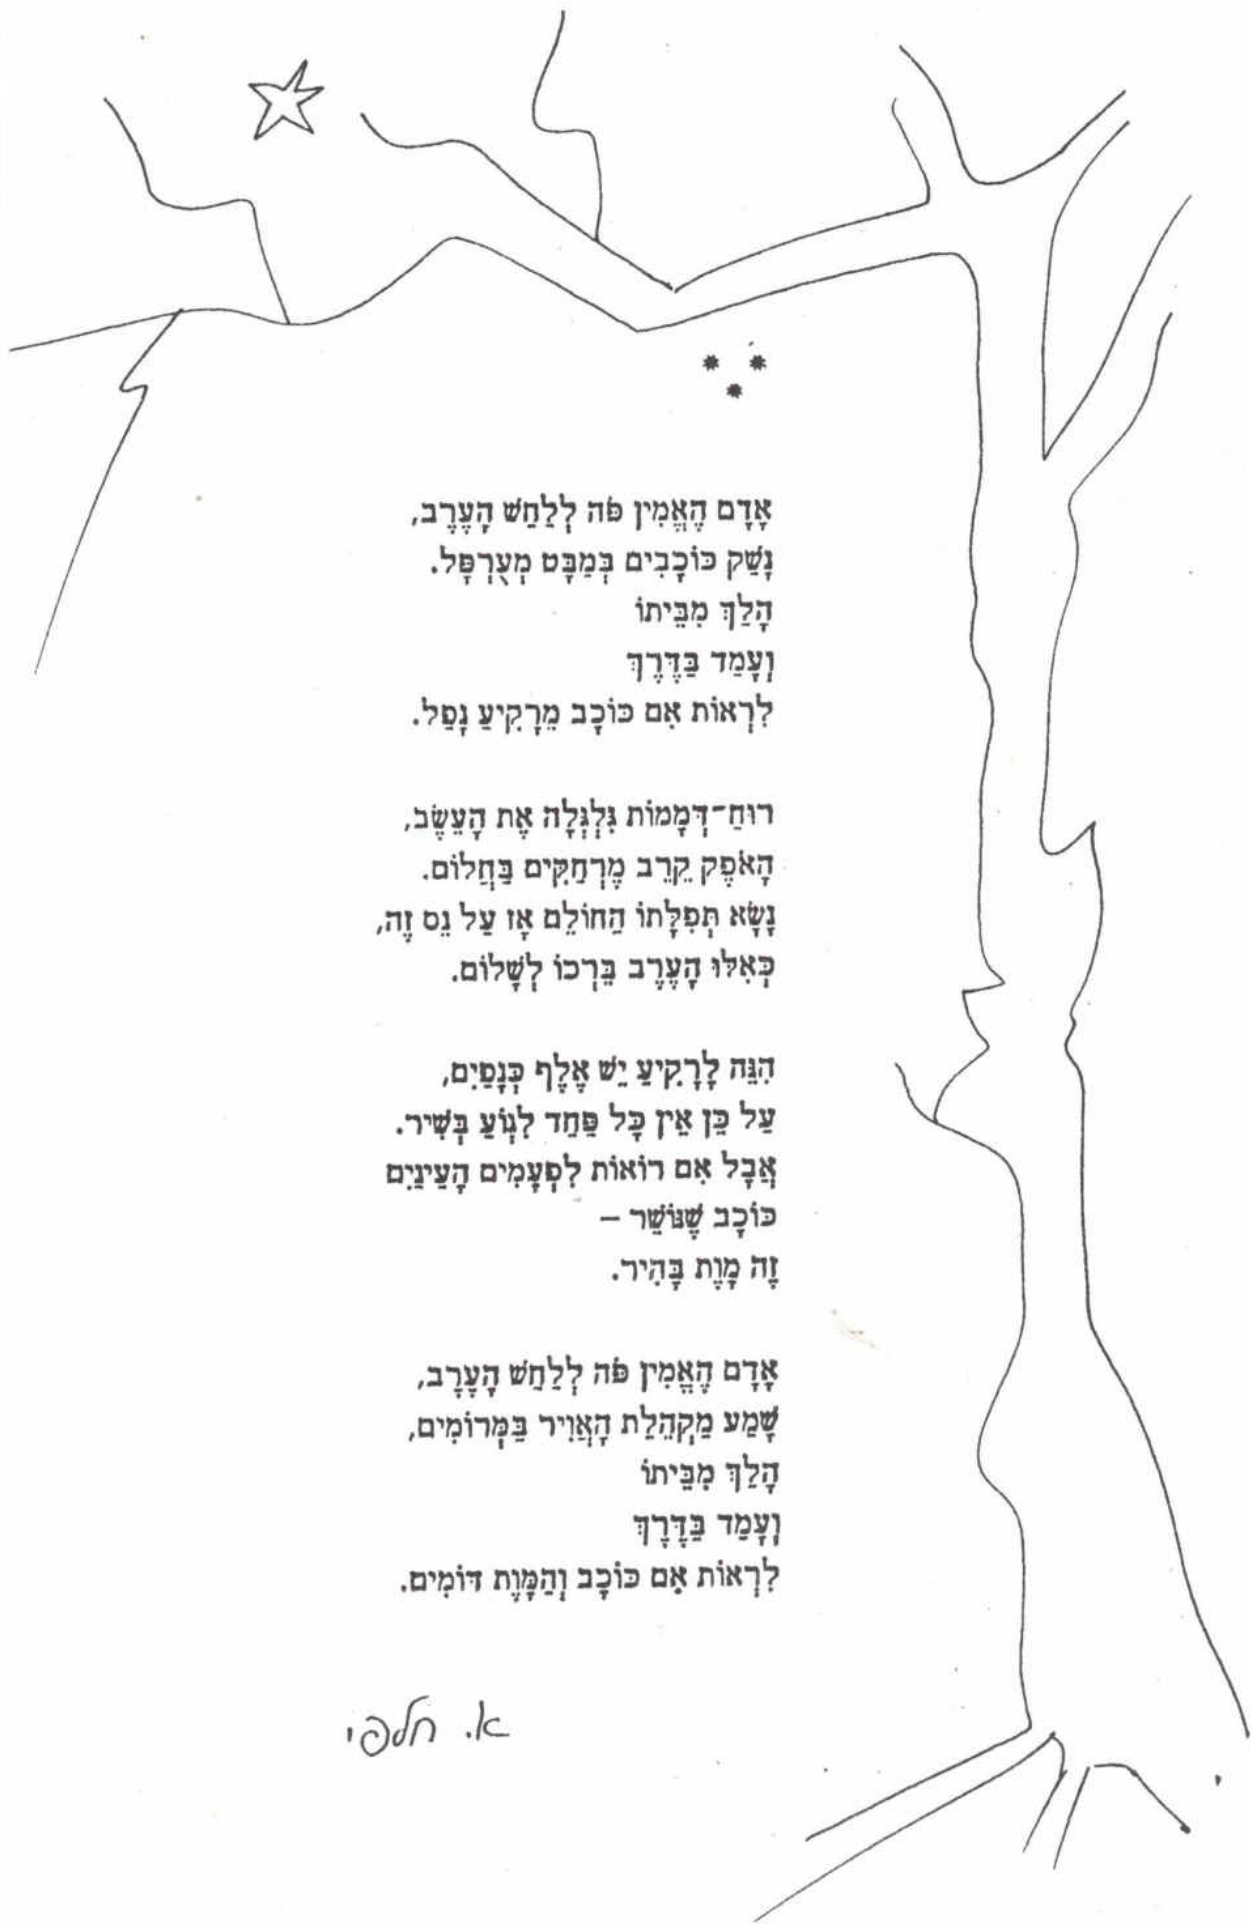 * *
*
אָדָם הֶאֱמִין פֹּה לְלַחַשׁ הָעֶרֶב,
נָשַׁק כּוֹכָבִים בְּמַבָּט מְעֻרְפָּל.
הָלַךְ מִבֵּיתוֹ
וְעָמַד בַּדֶּרֶךְ
לִרְאוֹת אִם כּוֹכָב מֵרָקִיעַ נָפַל.

רוּחַ־דְּמָמוֹת גִּלְגְּלָה אֶת הָעֵשֶׂב,
הָאֹפֶק קֵרֵב מֶרְחַקִּים בַּחֲלוֹם.
נָשָׂא תְּפִלָּתוֹ הַחוֹלֵם אָז עַל נֵס זֶה,
כְּאִלּוּ הָעֶרֶב בֵּרְכוֹ לְשָׁלוֹם.

הִנֵּה לָרָקִיעַ יֵשׁ אֶלֶף כְּנָפַיִם,
עַל כֵּן אֵין כָּל פַּחַד לִגְוֹעַ בְּשִׁיר.
אֲבָל אִם רוֹאוֹת לִפְעָמִים הָעֵינַיִם
כּוֹכָב שֶׁנּוֹשֵׁר –
זֶה מָוֶת בָּהִיר.

אָדָם הֶאֱמִין פֹּה לְלַחַשׁ הָעָרֶב,
שָׁמַע מַקְהֵלַת הָאֲוִיר בַּמְּרוֹמִים,
הָלַךְ מִבֵּיתוֹ
וְעָמַד בַּדֶּרֶךְ
לִרְאוֹת אִם כּוֹכָב וְהַמָּוֶת דּוֹמִים.

א. חלפי